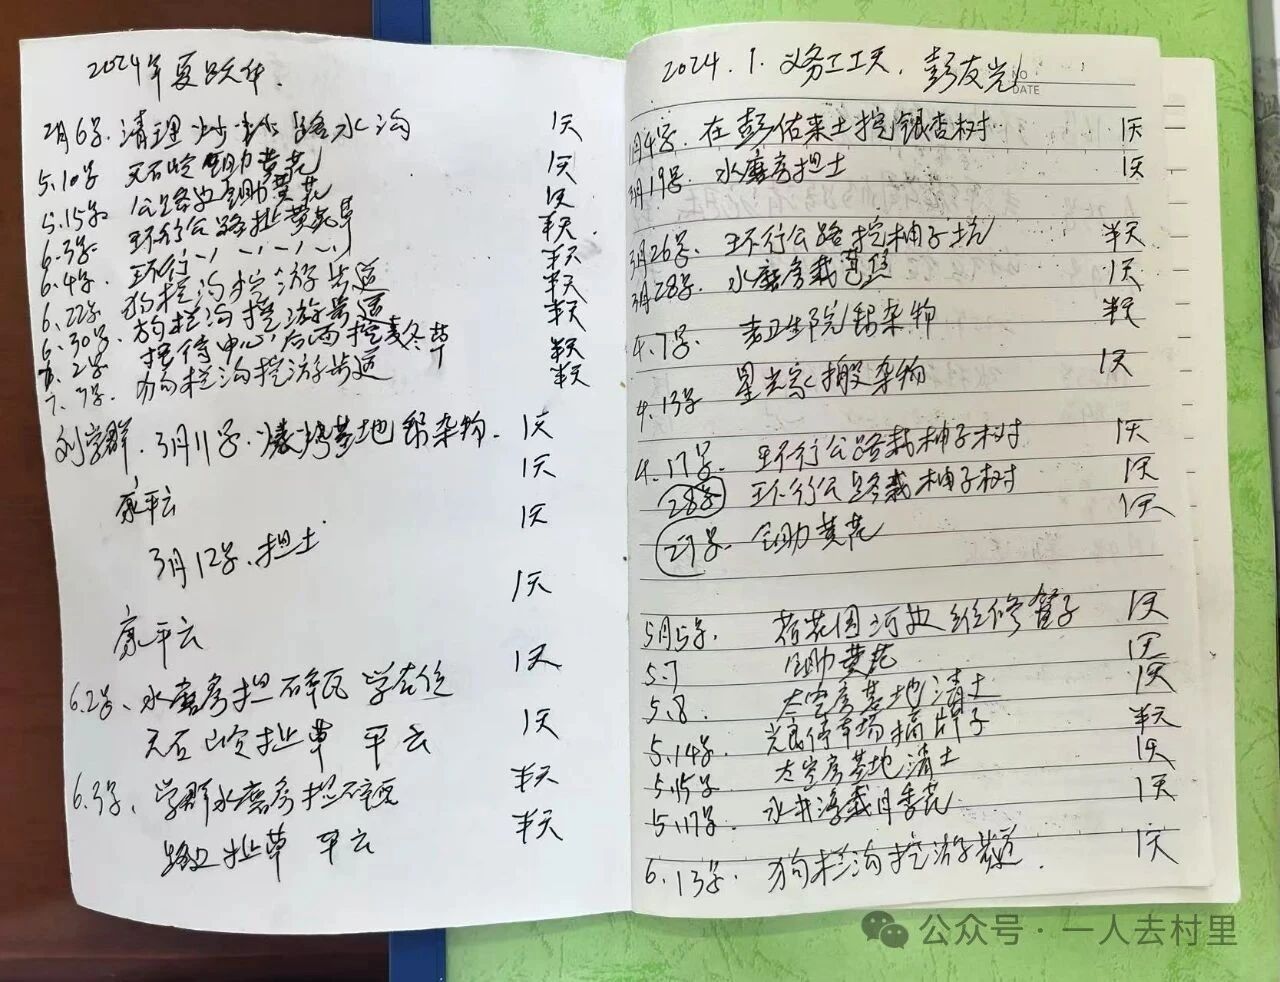 2024年夏
2月6号 清理 路水沟 1天
5.10号 天石岭 黄花 1天
5.15号 公路边 黄花 1天
6.3号 环行公路扯黄花草 半天
6.4号 环行 半天
6.22号 狗栏沟挖游步道 半天
6.30号 狗栏沟挖游步道 半天
7.2号 接待中心后面挖麦冬草 半天
7.3号 狗栏沟挖游步道 半天
刘学群.3月11号.烧烤基地 杂物. 1天
平云 1天
3月12号.担土 1天
平云 1天
6.2号、水磨房担碎瓦 学 1天
天石岭扯草 平云 1天
6.3号、学群水磨房担碎瓦 半天
扯草 平云 半天
2024.1.义务工工天. 彭友光
NO
DATE
1月4号 在彭佑来土挖银杏树 1天
3月19号 水磨房担土 1天
3月26号 环行公路挖柚子坑 半天
3月28号 水磨房栽芭蕉 1天
4.7号 卫生院 杂物 半天
4.13号 星光 搬杂物 1天
4.17号 环行公路栽柚子树 1天
28号 环行公路栽柚子树 1天
29号. 黄花 1天
5月5号. 荷花园河边维修管子 1天
5.7 黄花 1天
5.8. 太空房基地清土 1天
5.14号. 停车场搞牌子 半天
5.15号 太空房基地清土 1天
5.17号. 水井湾栽月季花 1天
6.13号. 狗栏沟挖游步道. 1天
公众号·一人去村里